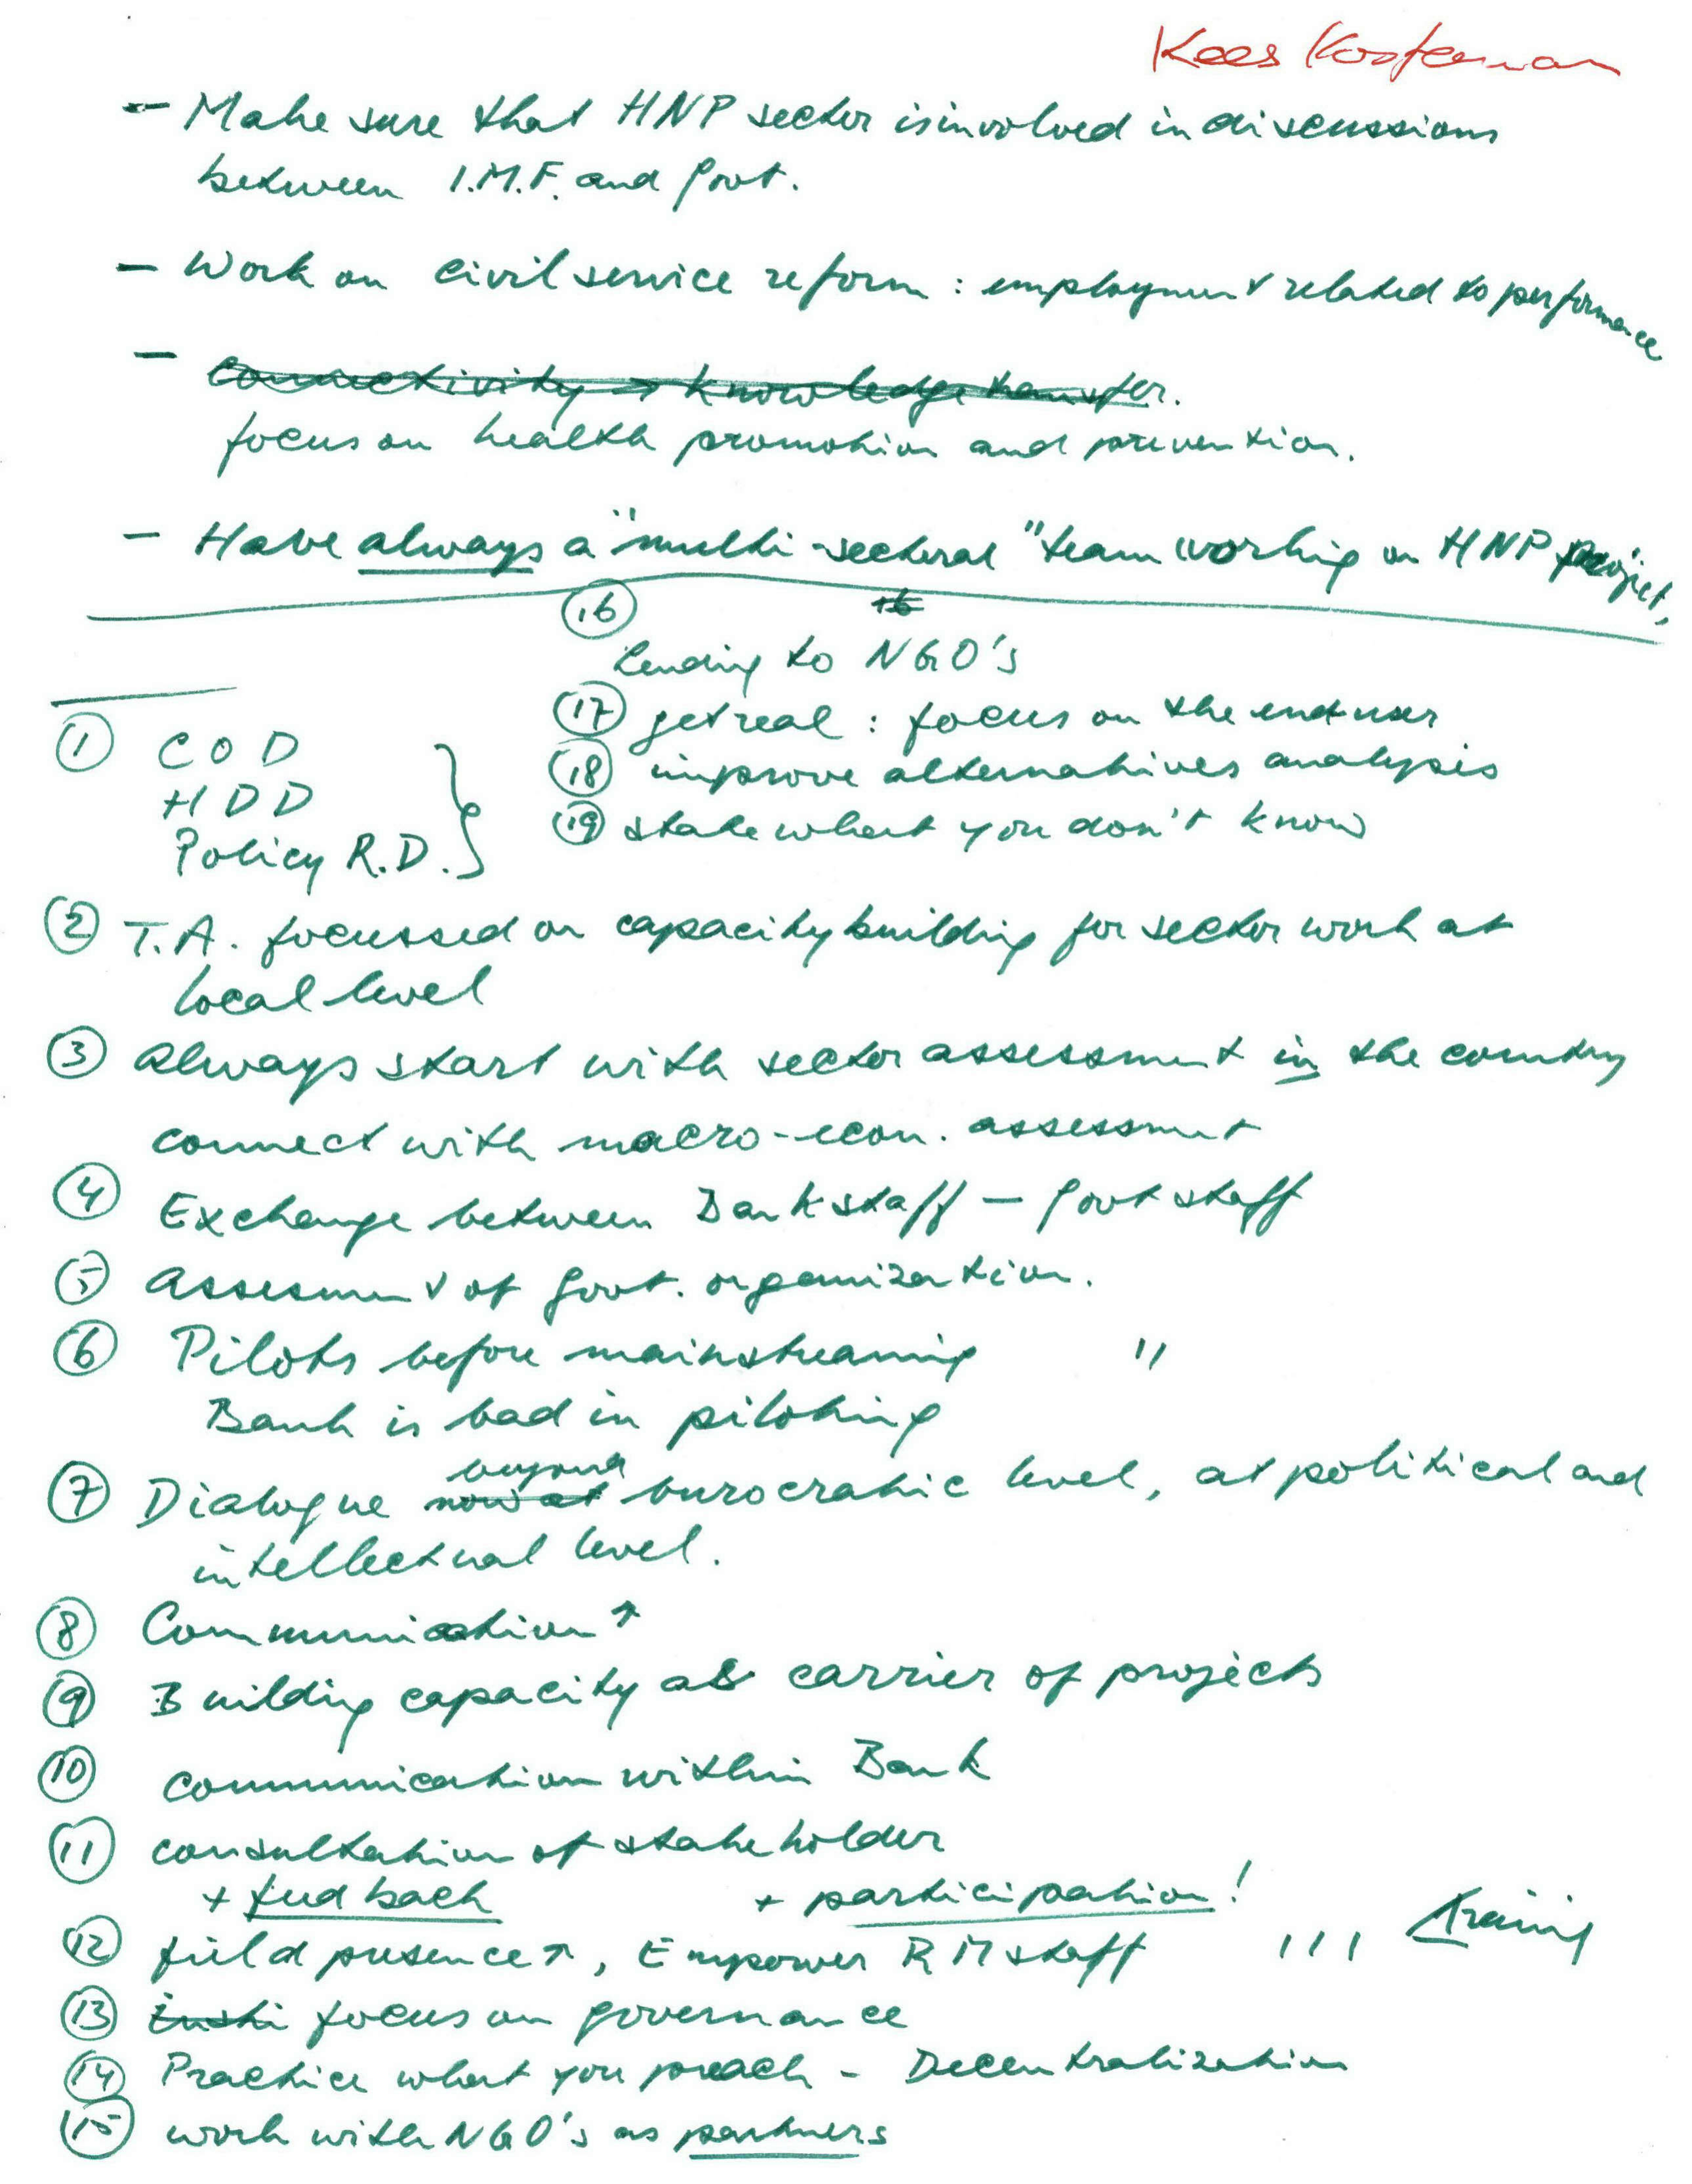 Kees Kosterman
- Make sure that HNP sector is involved in discussions
between I.M.F. and Govt.
- Work on civil service reform : employment related to performance
- Connectivity → knowledge transfer.
focus on health promotion and prevention.
- Have always a "multi-sectoral" team working on HNP project,
(16) 16
Lending to NGO's
(17) get real : focus on the enduser
(18) improve alternatives analysis
(19) state what you don't know
(1) COD
HDD
Policy R.D.
(2) T.A. focussed on capacity building for sector work at
local level
(3) Always start with sector assessment in the country
connect with macro-econ. assessment
(4) Exchange between Bank staff - Govt staff
(5) Assesment of Govt. organization.
(6) Pilots before mainstreaming "
Bank is bad in piloting
beyond
(7) Dialogue now at burocratic level, at political and
intellectual level.
(8) Communication ↑
(9) Building capacity as carrier of projects
(10) communication within Bank
(11) consultation of stakeholder
+ feedback + participation !
(12) field presence ↑, Empower RM staff ! ! ! Training
(13) Insti focus on governance
(14) Practice what you preach - Decentralization
(15) work with NGO's as partners